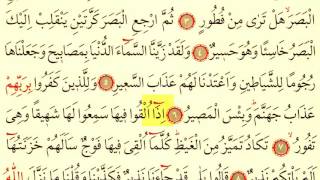 الْبَصَرَ هَلْ تَرَىٰ مِنْ فُطُورٍ ٣ ثُمَّ ارْجِعِ الْبَصَرَ كَرَّتَيْنِ يَنْقَلِبْ اِلَيْكَ
الْبَصَرُ خَاسِئًا وَهُوَ حَسِيرٌ ٤ وَلَقَدْ زَيَّنَّا السَّمَاءَ الدُّنْيَا بِمَصَابِيحَ وَجَعَلْنَاهَا
رُجُومًا لِلشَّيَاطِينِ وَاَعْتَدْنَا لَهُمْ عَذَابَ السَّعِيرِ ٥ وَلِلَّذِينَ كَفَرُوا بِرَبِّهِمْ
عَذَابُ جَهَنَّمَ وَبِئْسَ الْمَصِيرُ ٦ اِذَا اُلْقُوا فِيهَا سَمِعُوا لَهَا شَهِيقًا وَهِيَ
تَفُورُ ٧ تَكَادُ تَمَيَّزُ مِنَ الْغَيْظِ كُلَّمَا اُلْقِيَ فِيهَا فَوْجٌ سَاَلَهُمْ خَزَنَتُهَا